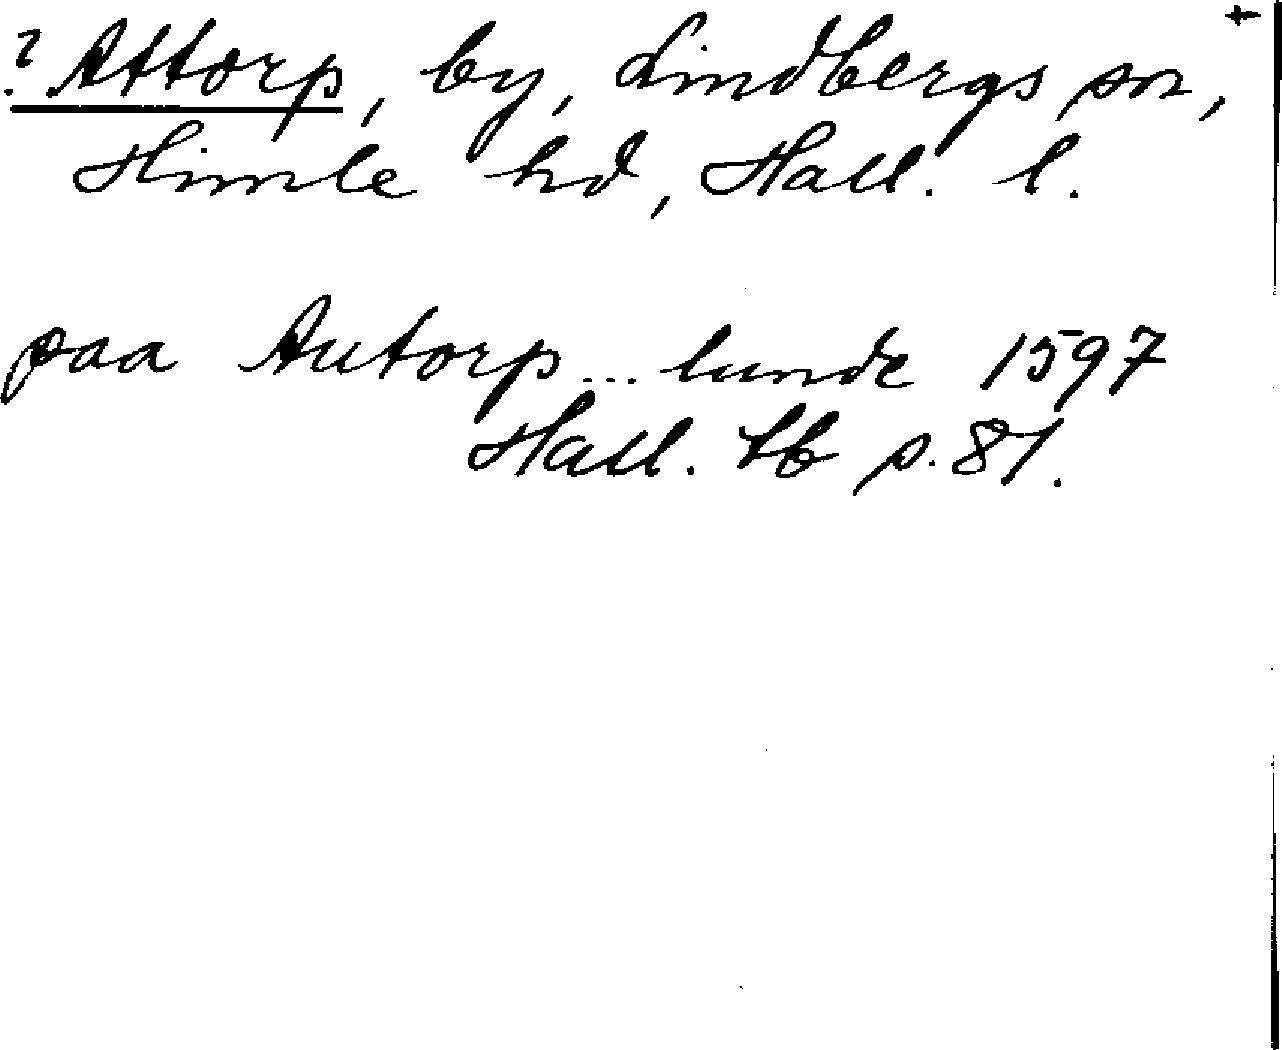 ? Attorp, by, Lindbergs sn,
Himle hd, Hall. l.
paa Autorp ... lunde 1597
Hall. tb s. 81.